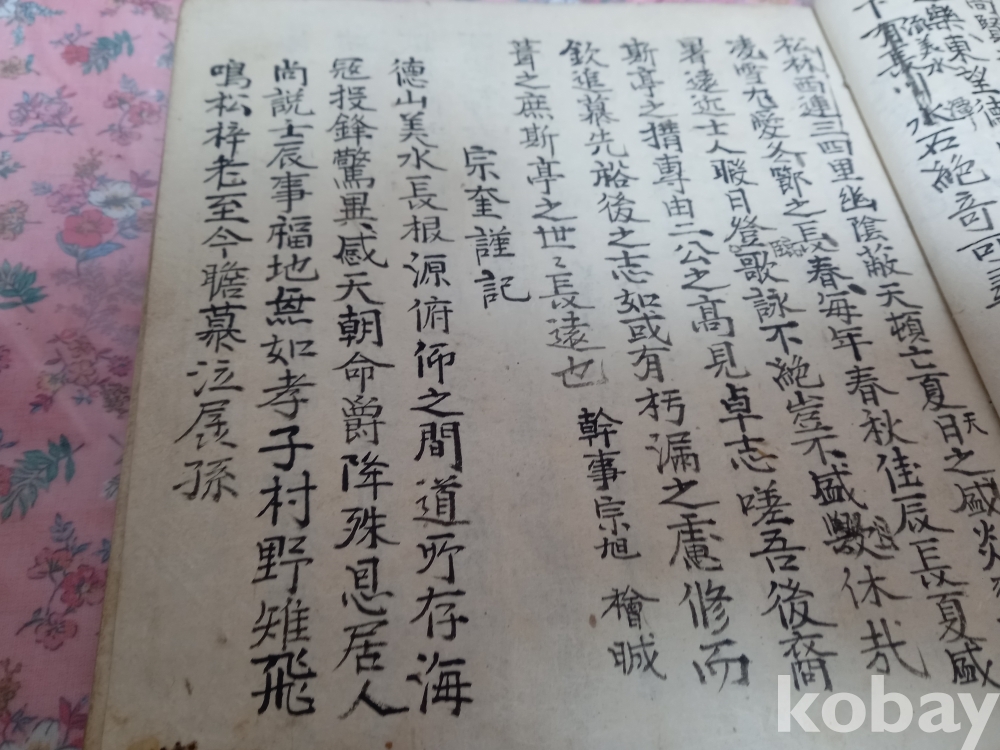 高賢
樂東望德
須美水
下有長川水石絶奇可
松林西連三四里幽陰蔽天頓亡夏日之盛炎
天
凌雪九愛冬鄧之長春每年春秋佳辰長夏盛
臨
暑遠近士人暇日登歌詠不絶豈不盛歟休哉
斯亭之搆專由二公之高見卓志嗟吾後裔
欽進慕先船後之志如或有朽漏之慮修而
葺之庶斯亭之世〻長遠也 幹事宗旭 檜
宗奎謹記
德山美水長根源俯仰之間道所存海
冦投鋒驚異感天朝命爵降殊恩居人
尚説士辰事福地無如孝子村野雉飛
鳴松梓老至今瞻慕泣孱孫
kobay